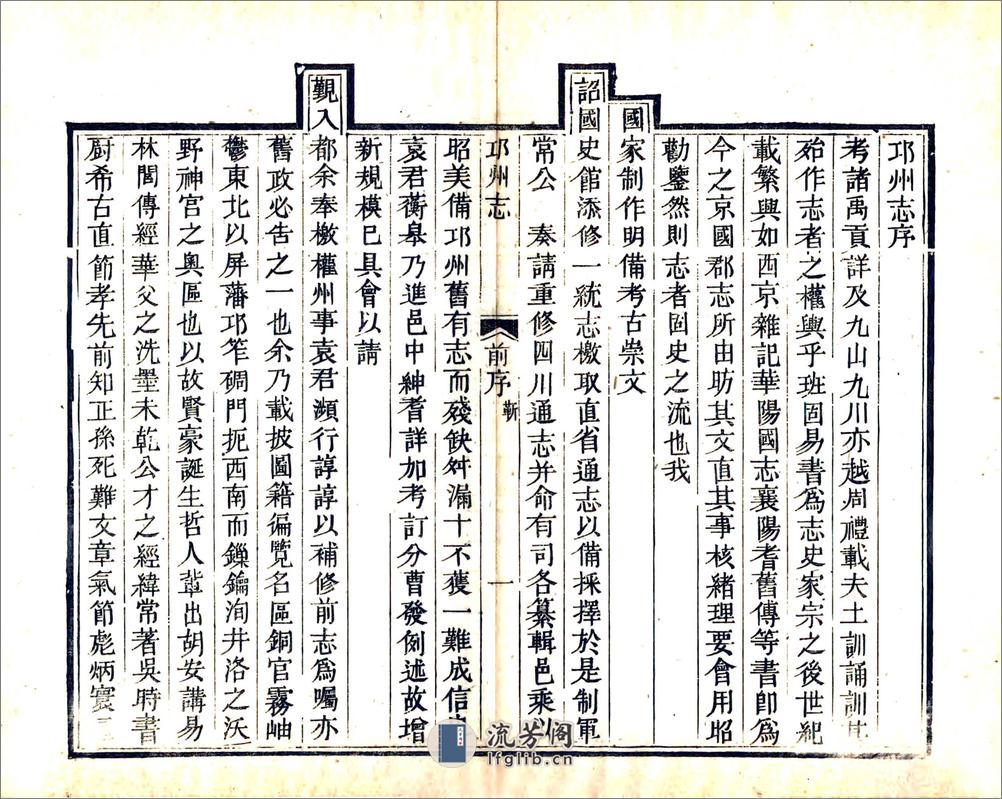 邛州志序
考諸禹貢詳及九山九川亦越周禮載夫土訓誦訓其
殆作志者之權輿乎班固易書爲志史家宗之後世紀
載繁興如西京雜記華陽國志襄陽耆舊傳等書卽爲
今之京國郡志所由昉其文直其事核緒理要會用昭
勸鑒然則志者固史之流也我
國家制作明備考古崇文
詔國史館添修一統志檄取直省通志以備採擇於是制軍
常公 奏請重修四川通志并命有司各纂輯邑乘以
邛州志
前序 靳
一
昭美備邛州舊有志而殘缺舛漏十不獲一難成信
袁君蘅皋乃進邑中紳耆詳加考訂分曹發例述故增
新規模已具會以請
覲入都余奉檄權州事袁君瀕行諄諄以補修前志爲囑亦
舊政必告之一也余乃載披圖籍徧覽名區銅官霧岫
鬱東北以屏藩邛笮碉門扼西南而鏁鑰洵井洛之沃
野神宮之奧區也以故賢豪誕生哲人輩出胡安講易
林閭傳經華父之洗墨未乾公才之經緯常著吳時書
厨希古直節孝先前知正孫死難文章氣節彪炳寰
流芳阁
lfglib.cn